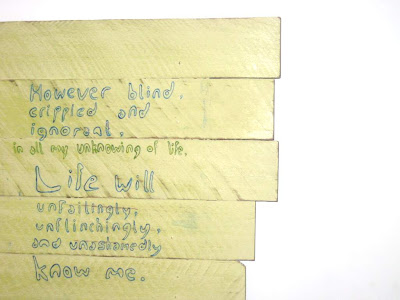 However blind.
crippled and
ignorant,
In all my unknowing of life.
Life will
unfailingly,
unflinchingly,
and unashamedly
know me.